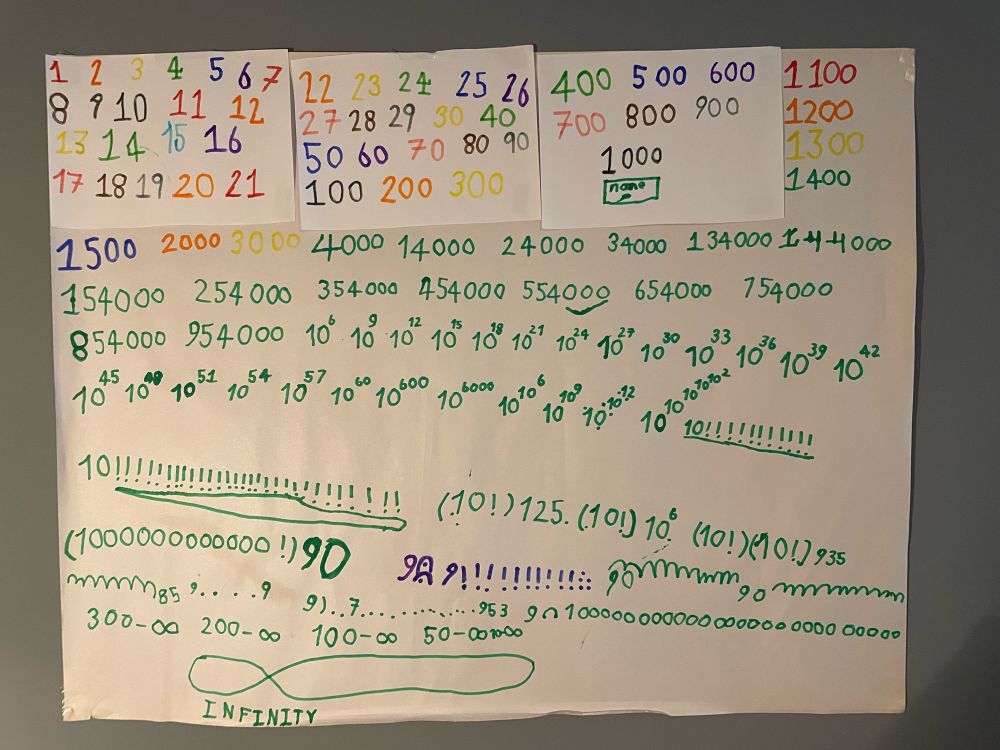 1 2 3 4 5 6 7
8 9 10 11 12
13 14 15 16
17 18 19 20 21
22 23 24 25 26
27 28 29 30 40
50 60 70 80 90
100 200 300
400 500 600
700 800 900
1000
name
1100
1200
1300
1400
1500 2000 3000 4000 14000 24000 34000 134000 144000
154000 254000 354000 454000 554000 654000 754000
854000 954000 10⁶ 10⁹ 10¹² 10¹⁵ 10¹⁸ 10²¹ 10²⁴ 10²⁷ 10³⁰ 10³³ 10³⁶ 10³⁹ 10⁴²
10⁴⁵ 10⁴⁸ 10⁵¹ 10⁵⁴ 10⁵⁷ 10⁶⁰ 10⁶⁰⁰ 10⁶⁰⁰⁰ 10^10^6 10^10^9 10^10^12 10^10^10^10^2
10!!!!!!!!!!!
10!!!!!!!!!!!!!!!!!!!!!!!!!!!!
(10!)125. (10!)10⁶ (10!)(10!)935
(1000000000000!)90
9!!!!!!!!!!!
90
85 9....9
90
9)..7............953
300-∞ 200-∞ 100-∞ 50-∞
INFINITY